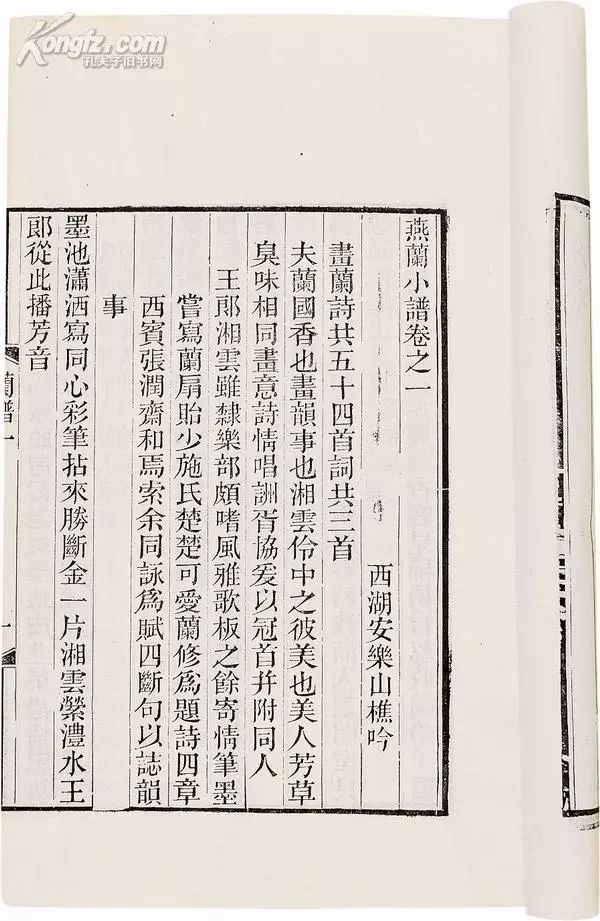 Kongfz.com
孔夫子旧书网
燕蘭小譜卷之一
西湖安樂山樵吟
畫蘭詩共五十四首詞共三首
夫蘭國香也畫韻事也湘雲伶中之彼美也美人芳草
臭味相同畫意詩情唱詶胥協爰以冠首并附同人
王郎湘雲雖隸樂部頗嗜風雅歌板之餘寄情筆墨
嘗寫蘭扇貽少施氏楚楚可愛蘭修為題詩四章
西賓張潤齋和焉索余同詠為賦四斷句以誌韻
事
墨池瀟洒寫同心彩筆拈來勝斷金一片湘雲縈澧水王
郎從此播芳音
蘭譜一
一